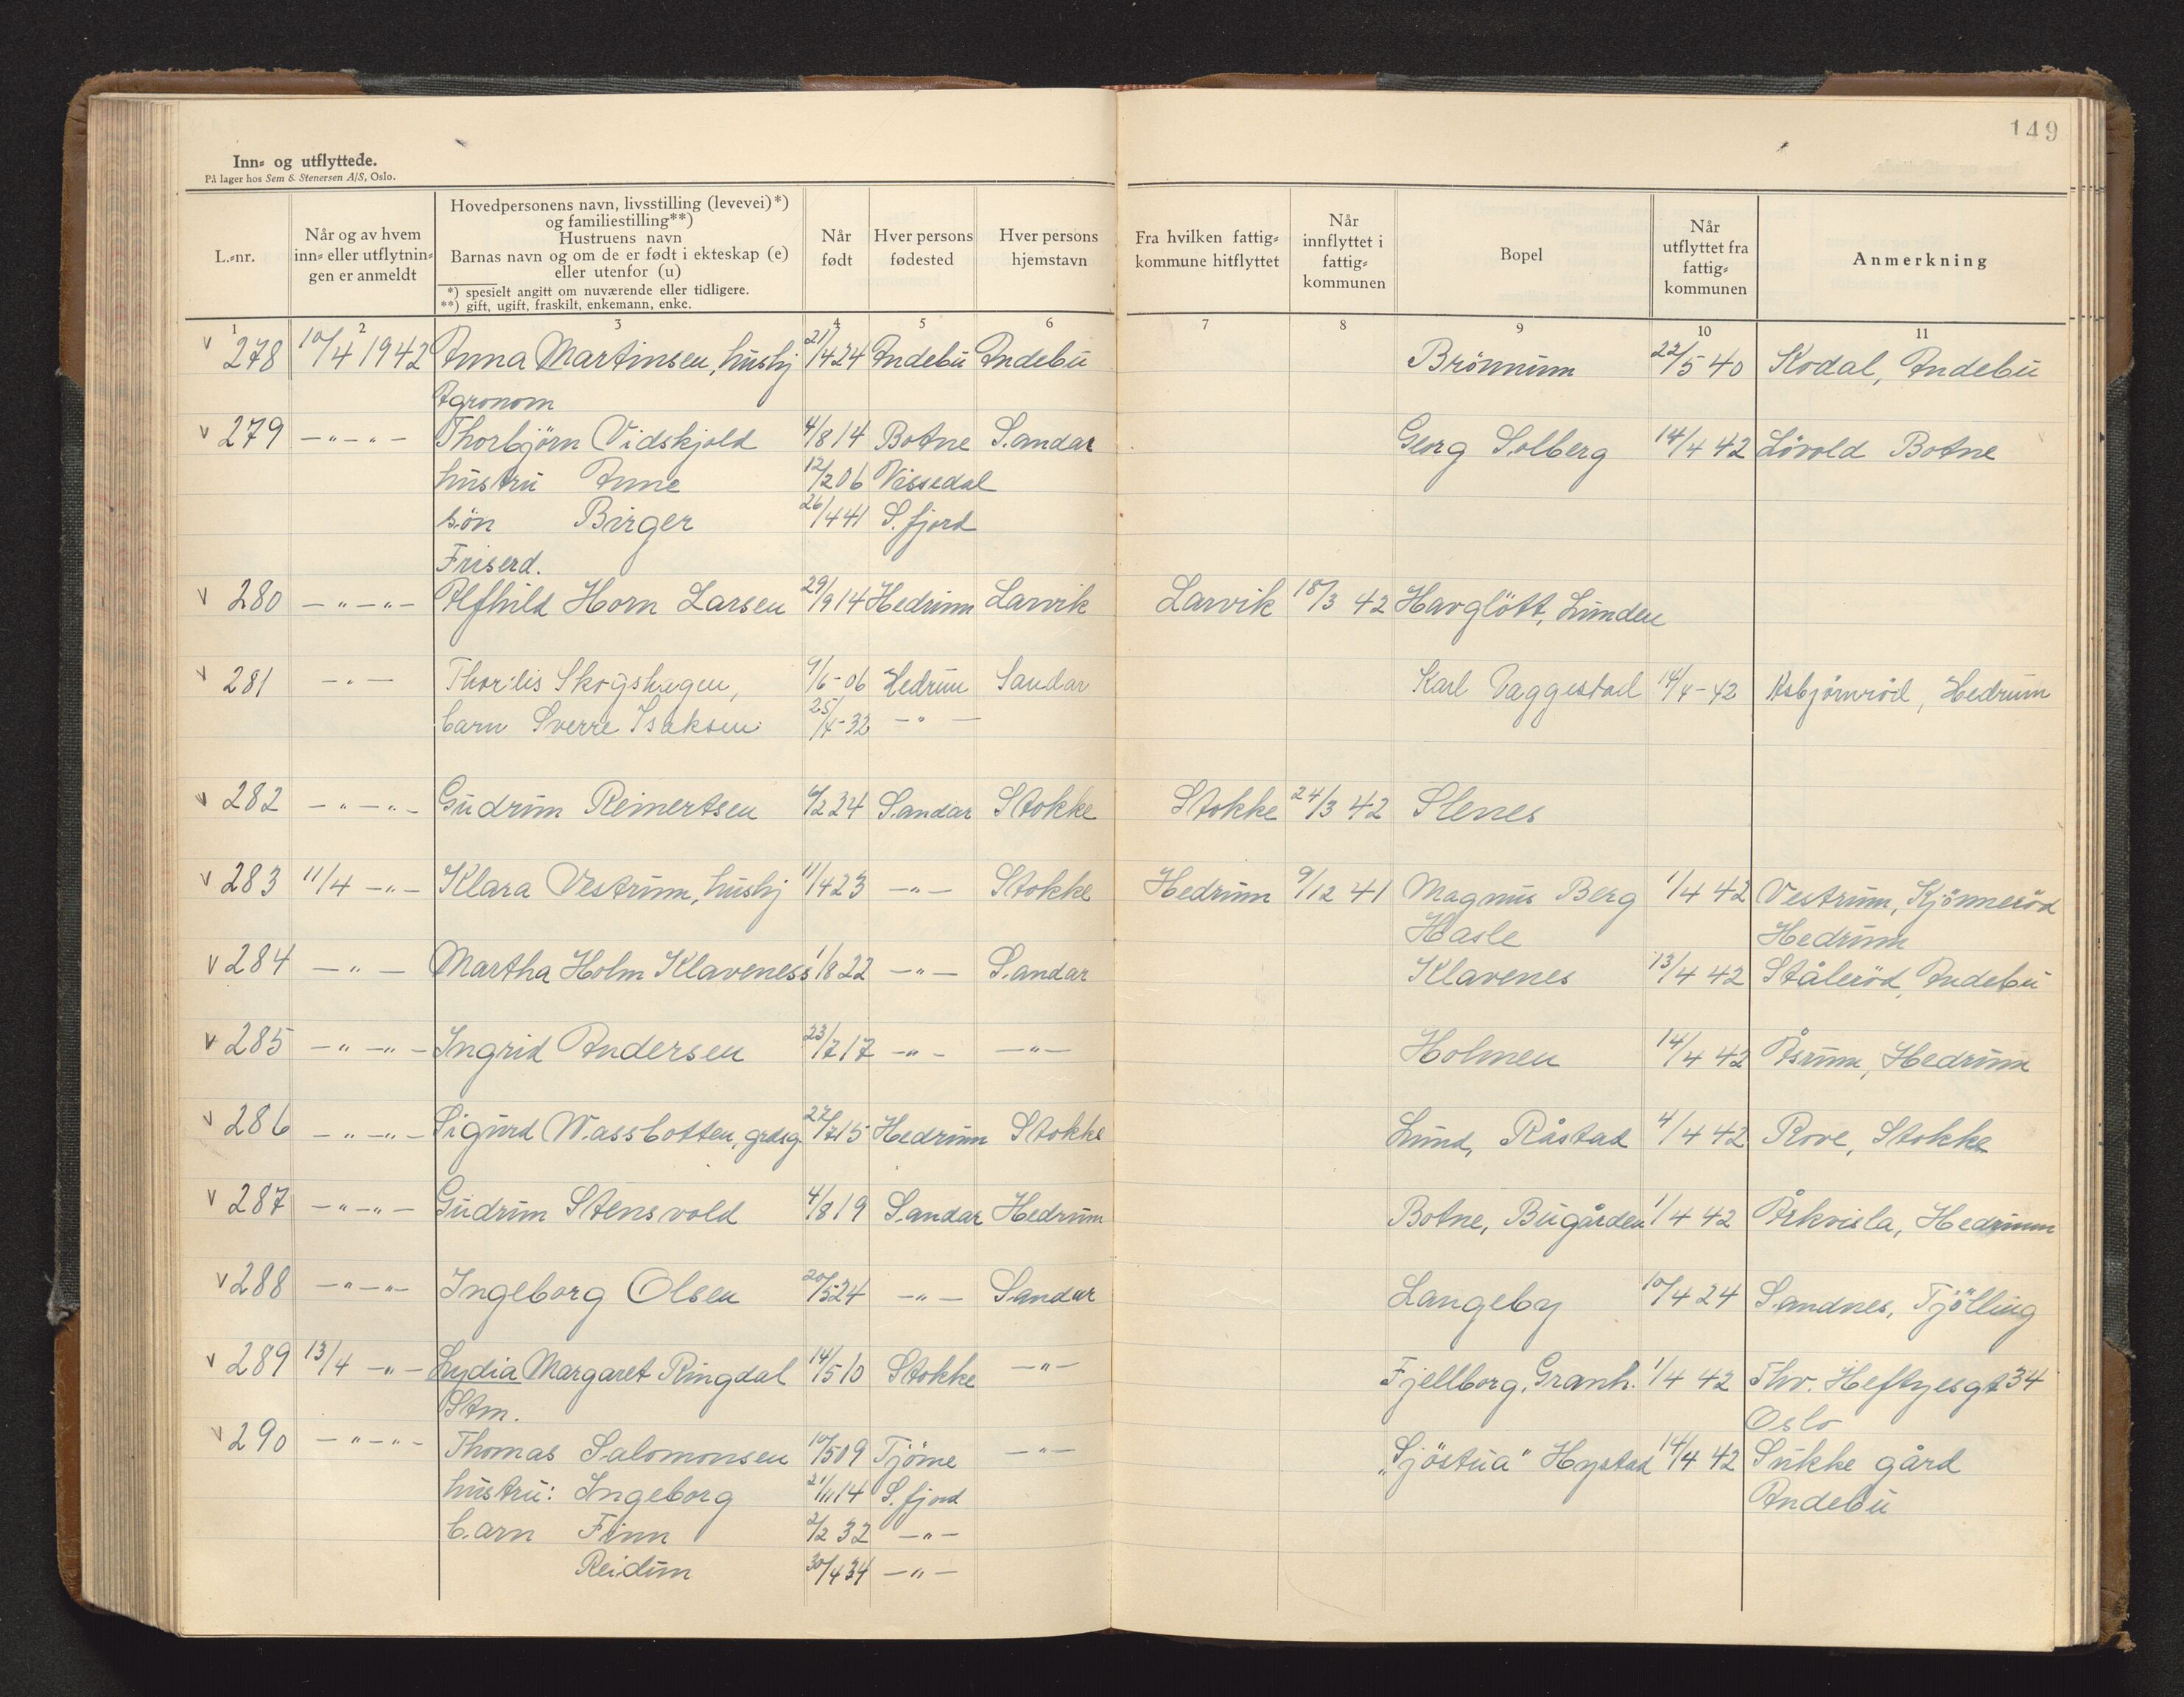 149
Inn= og utflyttede.
På lager hos Sem & Stenersen A/S, Oslo.
L.=nr.
Når og av hvem
inn= eller utflytnin=
gen er anmeldt
Hovedpersonens navn, livsstilling (levevei)*)
og familiestilling**)
Hustruens navn
Barnas navn og om de er født i ekteskap (e)
eller utenfor (u)
*) spesielt angitt om nuværende eller tidligere.
**) gift, ugift, fraskilt, enkemann, enke.
Når
født
Hver persons
fødested
Hver persons
hjemstavn
Fra hvilken fattig=
kommune hitflyttet
Når
innflyttet i
fattig=
kommunen
Bopel
Når
utflyttet fra
fattig=
kommunen
Anmerkning
1 2 3 4 5 6 7 8 9 10 11
v 278 10/4 1942 Anna Martinsen, hushj 21/4 24 Andebu Andebu Brönnum 22/5 40 Kodal, Andebu
Agronom
v 279 — " — " — Thorbjörn Vidskjold 4/8 14 Botne Sandar Georg Solberg 14/4 42 Lövold Botne
hustru Anne 12/2 06 Vissedal
sön Birger 26/4 41 S.fjord
Friserd.
v 280 — " — " — Alfhild Horn Larsen 29/9 14 Hedrum Larvik Larvik 18/3 42 Havglött, Lunden
v 281 — " — Thorlis Skogshagen, 9/6-06 Hedrum Sandar Karl Vaggestad 14/4-42 Asbjørnrød, Hedrum
barn Sverre Isaksen 25/4-32 — " —
v 282 — " — " — Gudrun Reinertsen 6/2 24 Sandar Stokke Stokke 24/3 42 Slenes
v 283 11/4 — " — Klara Vestrum, hushj 11/4 23 — " — Stokke Hedrum 9/12 41 Magnus Berg 1/4 42 Vestrum, Kjönneröd
Hasle Hedrum
v 284 — " — Martha Holm Klaveness 1/8 22 — " — Sandar Klavenes 13/4 42 Ståleröd, Andebu
v 285 — " — " — Ingrid Andersen 23/7 17 — " — — " — Holmen 14/4 42 Åsrum, Hedrum
v 286 — " — " — Sigurd Wassbotten, grdsg. 27/7 15 Hedrum Stokke Lund, Råstad 4/4 42 Rove, Stokke
v 287 — " — " — Gudrun Stensvold 4/8 19 Sandar Hedrum Botne, Bugården 1/4 42 Askvisla, Hedrum
v 288 — " — " — Ingeborg Olsen 20/5 24 — " — Sandar Langeby 10/4 24 Sandnes, Tjölling
v 289 13/4 — " — Lydia Margaret Ringdal 14/5 10 Stokke — " — Fjellborg, Granh. 1/4 42 Thv. Heftyesgt 34
Stm. Oslo
v 290 — " — " — Thomas Salomonsen 10/5 09 Tjöme — " — „Sjöstua" Hystad 14/4 42 Sukke gård
hustru: Ingeborg 21/11 14 S.fjord Andebu
barn Finn 2/2 32 — " —
Reidun 30/4 34 — " —